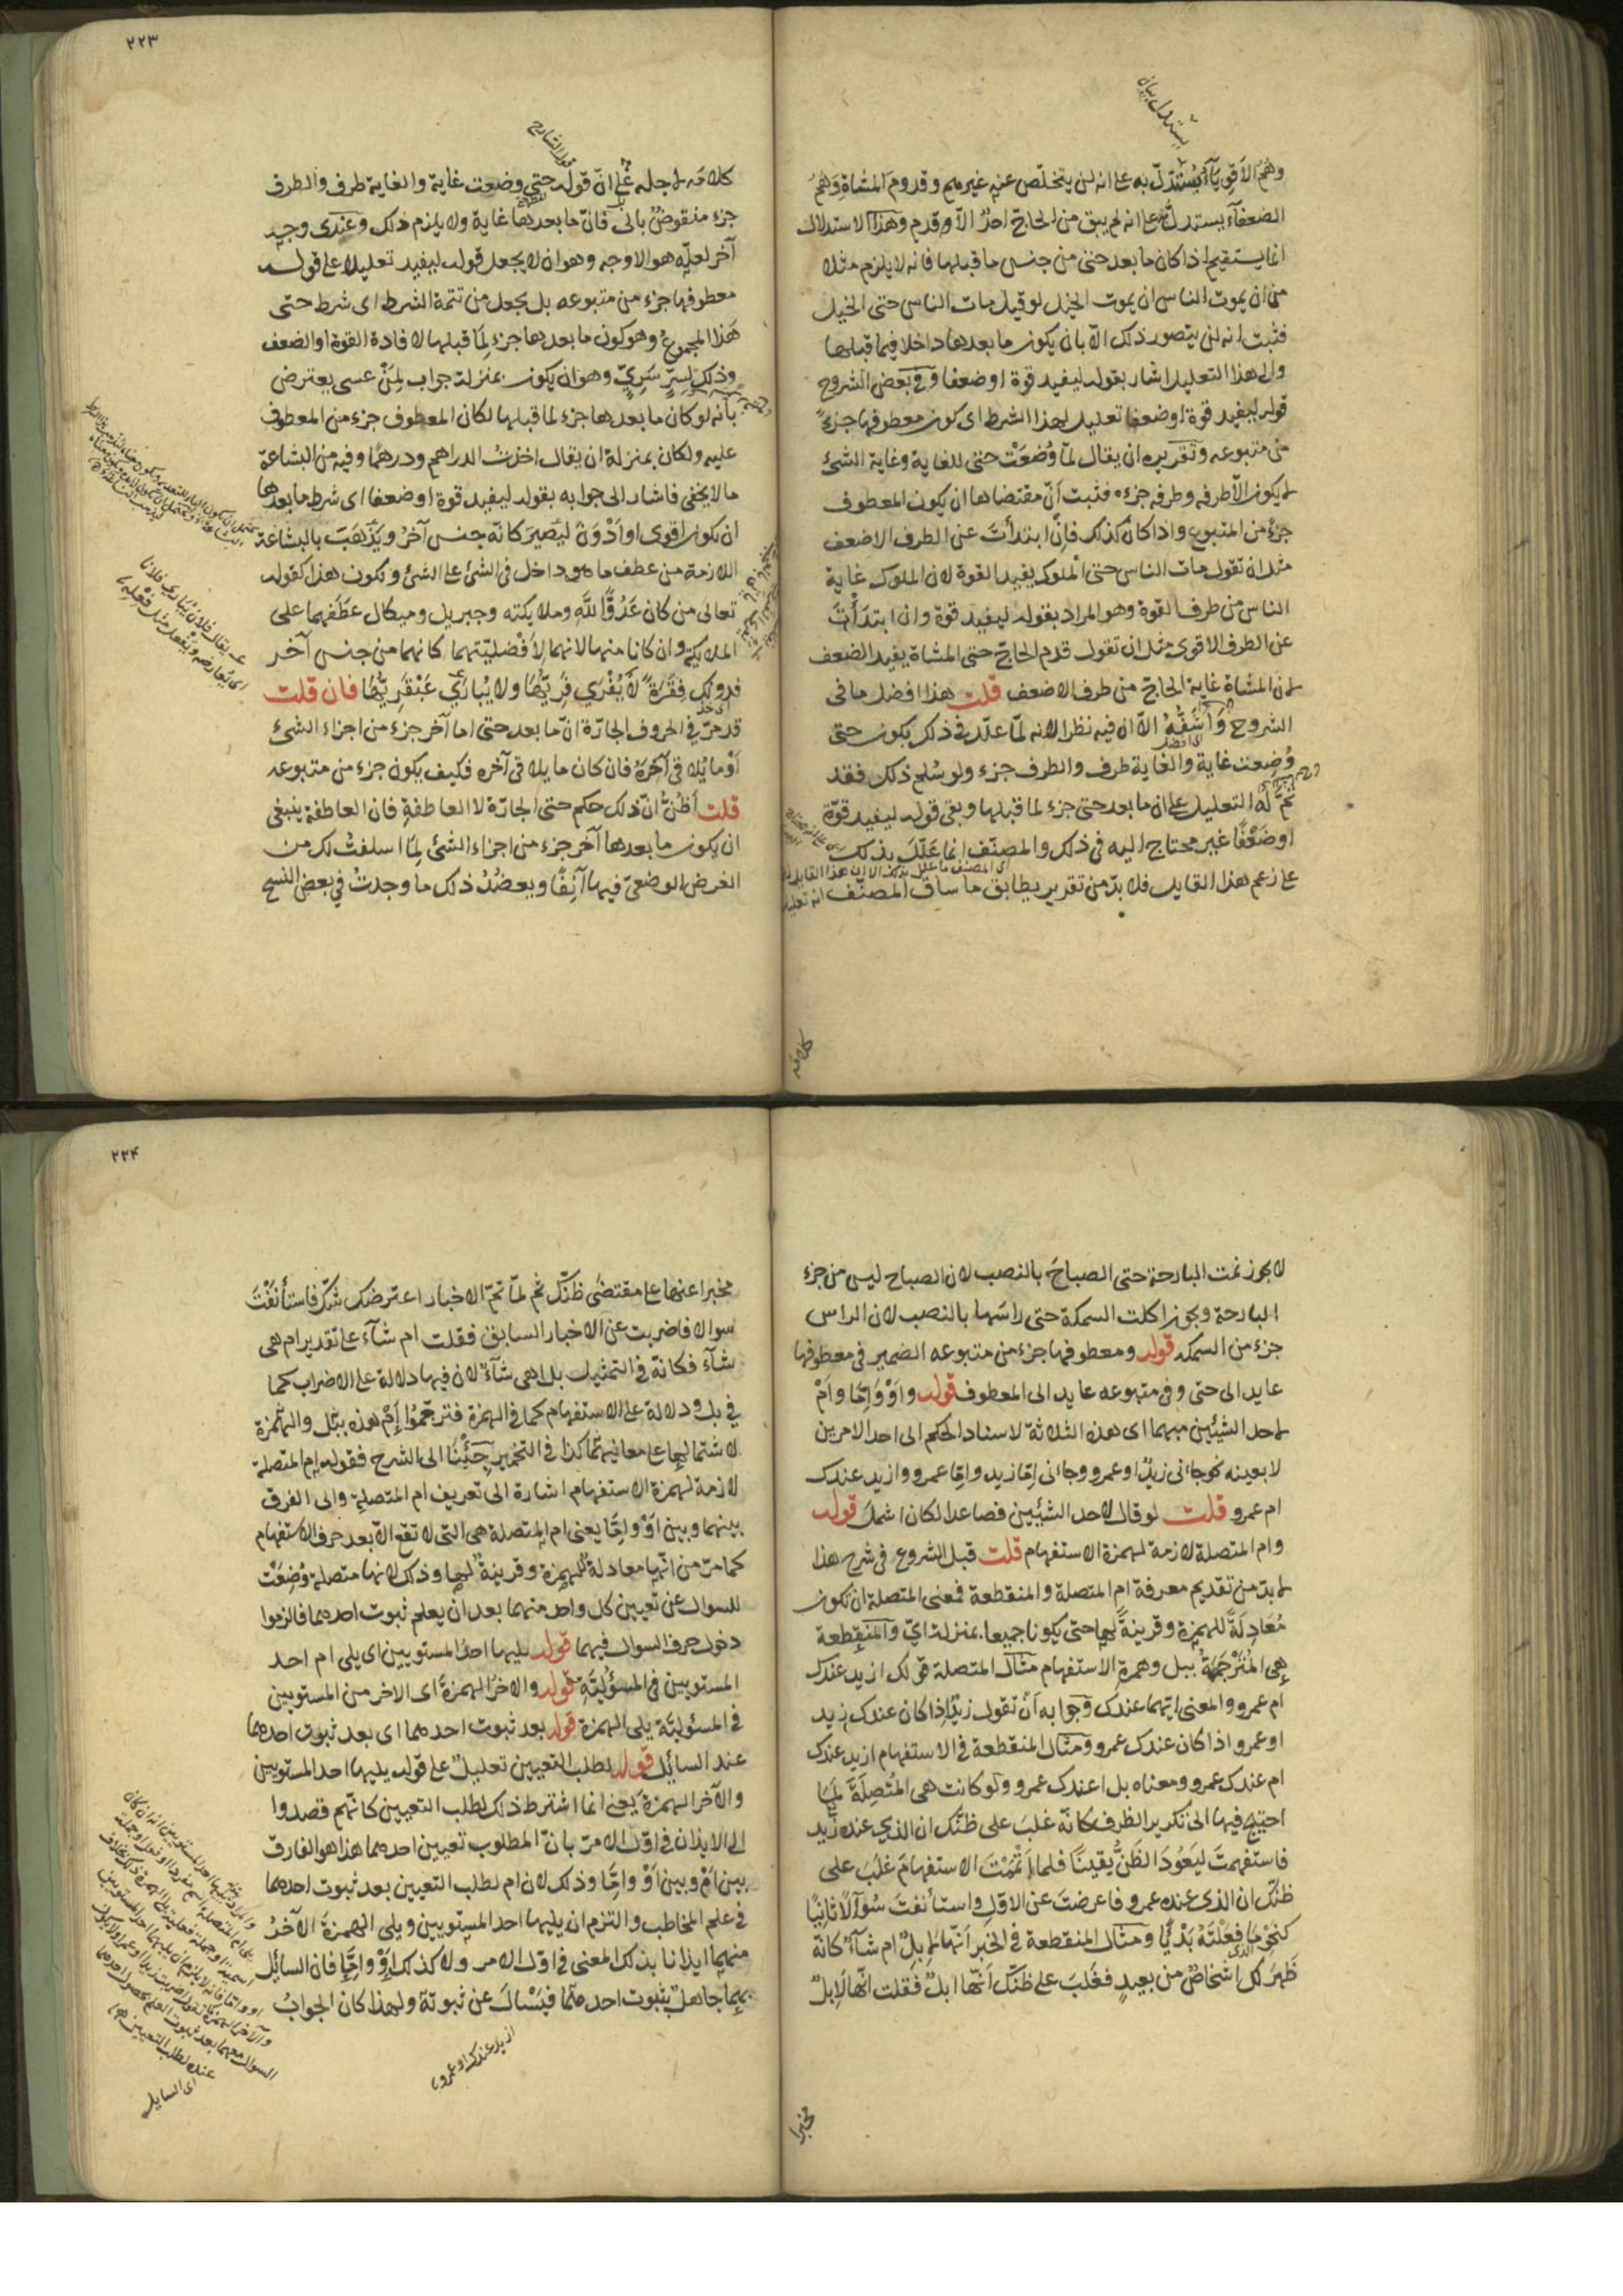 وهم الاقوياء يستدل به على انه لن يتخلص عنه غيرهم وقدوم المشاة وهم
الضعفاء يستدل على انه لم يبق من الحاج احد الا وقدم وهذا الاستدلال
انما يستقيم اذا كان ما بعد حتى من جنس ما قبلها فانه لا يلزم مثلا
من ان يموت الناس ان يموت الخيل لو قيل مات الناس حتى الخيل
فثبت انه لن يتصور ذلك الا بان يكون ما بعدها داخلا فيما قبلها
والى هذا التعليل اشار بقوله ليفيد قوة او ضعفا وفي بعض الشروح
قوله ليفيد قوة او ضعفا تعليل لهذا الشرط اى كون معطوفها جزءً
من متبوعه وتقريره ان يقال لمّا وُضعَتْ حتى للغاية وغاية الشئ
لا يكون الا طرفه وطرفه جزءه فثبت أنّ مقتضاها ان يكون المعطوف
جزءً من المتبوع واذا كان كذلك فان ابتدأتَ عن الطرف الاضعف
مثل ان تقول مات الناس حتى الملوك يفيد القوة لان الملوك غاية
الناس من طرف القوة وهو المراد بقوله ليفيد قوة وان ابتدَأْتَ
عن الطرف الاقوى مثل ان تقول قدم الحاج حتى المشاة يفيد الضعف
لان المشاة غاية الحاج من طرف الاضعف قلت هذا افضل ما فى
الشروح وَأَشَفُّهُ الا ان فيه نظرا لانه لمّا علّل فى ذلك بكون حتى
وُضِعت غاية والغاية طرف والطرف جزء ولو سُلم ذلك فقد
تَمَّ لَهُ التعليل على ان ما بعد حتى جزء لما قبلها وبقى قوله ليفيد قوّة
اوضَعْفًا غير محتاج اليه فى ذلك والمصنّف انما عَلّلَ بذلك
على زعم هذا القايل فلا بدّ من تقرير يطابق ما ساق المصنّف
كلامه
٢٢٣
كلامَه لاجله على انّ قوله حتى وضعت غاية والغاية طرف والطرف
جزء منقوضٌ بالى فانّ ما بعدها غاية ولا يلزم ذلك وعندى وجه
آخر لعلّه هو الاوجه وهو ان لا يجعل قوله ليفيد تعليلا على قوله
معطوفها جزء من متبوعه بل يجعل من تتمة الشرط اى شرط حتى
هَذا المجموعُ وهو كون ما بعدها جزء لِمَا قبلها لافادة القوة او الضعف
وذلك لِسِرٍّ سَرِيٍّ وهو ان يكون بمنزلة جواب لِمَنْ عسى يعترض
بانه لو كان ما بعدها جزء لما قبلها لكان المعطوف جزء من المعطوف
عليه ولكان بمنزلة ان يقال اخذتُ الدراهم ودرهمًا وفيه من البشاعة
ما لا يخفى فاشار الى جوابه بقوله ليفيد قوة او ضعفا اى شرط ما بعدها
ان يكون اقوى او اَدْوَنَ ليَصِيرَ كانّه جنس آخرُ ويَذْهَبَ بالبشاعة
اللازمة من عطف ما هو داخل فى الشئ على الشئ ويكون هذا كقوله
تعالى من كان عَدُوًّا لِلّٰهِ وملايكته وجبريل وميكال عطَفهما على
الملايكة وان كانا منها لانهما لِأَفْضليّتهما كانهما من جنس آخر
فدونك فِقْرَةً لَا يُفْرَي فَرِيُّهَا ولا يُبارَي عَبْقَرِيُّهَا فان قلت
قد مرّ فى الحروف الجارّة انّ ما بعد حتى اما آخر جزء من اجزاء الشئ
اَوْ ما يُلاقى آخرَهُ فان كان ما يلاقى آخره فكيف يكون جزء من متبوعه
قلت أظُنُّ انّ ذلك حكم حتى الجارّة لا العاطفةِ فان العاطفة ينبغى
ان يكون ما بعدها آخر جزء من اجزاء الشئ لِمَا اسلفتُ لك من
الغرض الوضعىّ فيها آنِفًا ويعضُدُ ذلك ما وجدتُ فى بعض النسخ
لا يجوز نمت البارحة حتى الصباحَ بالنصب لان الصباح ليس من جزء
البارحة ويجوز اكلت السمكة حتى راسَها بالنصب لان الراس
جزء من السمكة قوله ومعطوفها جزء من متبوعه الضمير فى معطوفها
عايد الى حتى وفى متبوعه عايد الى المعطوف قوله واَوْ وَاِمّا واَمْ
لاحد الشيئين مبهما اى هذه الثلاثة لاسناد الحكم الى احد الامرين
لا بعينه نحو جانى زيدٌ او عمرو وجانى اِمّا زيد واِمّا عمرو وازيد عندك
ام عمرو قلت لو قال لاحد الشيئين فصاعدا لكان اشمل قوله
وام المتصلة لازمة لهمزة الاستفهام قلت قبل الشروع فى شرح هذا
لا بدّ من تقديم معرفة ام المتصلة والمنقطعة فمعنى المتصلة ان تكون
مُعَادِلَةً للهمزة وقرينةً لها حتى يكونا جميعا بمنزلة اىّ والمنقطعة
هِىَ المُتَرْجَمَةُ ببل وهمزة الاستفهام مثال المتصلة قولك ازيد عندك
ام عمرو والمعنى ايّهما عندك وجوابه أنْ تقول زيدٌ اذا كان عندك زيد
او عمرو اذا كان عندك عمرو ومثال المنقطعة فى الاستفهام ازيد عندك
ام عندك عمرو ومعناه بل اعندك عمرو ولو كانت هى المُتّصِلَةَ لَمَا
احتيج فيها الى تكرير الظرف كانّه غلبَ على ظنّك ان الذي عنده زيد
فاستفهمتَ ليَعُودَ الظَنُّ يقينًا فلما أتْمَمْتَ الاستفهامَ غلبَ على
ظنّك ان الذى عنده عمرو فاعرضتَ عن الاول واستأنفتَ سُوآلًا ثانِيًا
كنَحْوِ ما فعَلْتَهُ بَدْءًا ومثال المنقطعة فى الخبر اَنّها لَاِبِلٌ ام شآءٌ كانّه
ظَهرَ لك اشخاصٌ من بعيدٍ فغَلبَ على ظنّك أنّها ابلٌ فقلت انّها لَاِبلٌ
مخبرا
٢٢٤
مخبرا عنها على مقتضى ظنّك ثم لمّا تمّ الاخبار اعترضك شكّ فاستأنفْتَ
سوالا فاضربت عن الاخبار السابق فقلت ام شآء على تقدير ام هى
شآء فكانّه فى التمثيل بل اهى شآءٌ لان فيها دلالة على الاضراب كما
في بل ودلالة على الاستفهام كما فى الهمزة فترجَمُوا اَمْ هذه ببَل والهمزة
لاشتمالها على معانيهما كذا فى التخمير جِئْنَا الى الشرح فقوله ام المتصلة
لازمة لهمزة الاستفهام اشارة الى تعريف ام المتصلة والى الفرق
بينها وبين اَوْ واِمّا يعنى ام المتصلة هى التى لا تقع الا بعد حرف الاستفهام
كما مرّ من انّها معادلةٌ للهمزة وقرينةٌ لها وذلك لانها متصلة وُضِعَتْ
للسوال عن تعيين كل واحد منهما بعد ان يعلم ثبوت احدهما فالزموا
دخول حرف السوال فيهما قوله يليها احد المستويين اى يلى ام احد
المستويين فى المسؤليّة قوله والاخر الهمزةَ اى الاخر من المستويين
فى المسئوليّة يلى الهمزة قوله بعد ثبوت احدهما اى بعد ثبوت احدهما
عند السايل قوله لطلب التعيين تعليلٌ على قوله يليها احد المستويين
والآخر الهمزة يعنى انما اشترط ذلك لطلب التعيين كانهم قصدوا
الى الايذان فى اوّل الامر بانّ المطلوب تعيين احدهما هذا هو الفارق
بين اَمْ وبين اَوْ واِمّا وذلك لان ام لطلب التعيين بعد ثبوت احدهما
فى علم المخاطب والتزم ان يليها احد المستويين ويلى الهمزةَ الآخرُ
منهما ايذانا بذلك المعنى فى اوّل الامر ولا كذلك اَوْ واِمّا فان السائل
بهما جاهلٌ بثبوت احدهما فيَسْال عن ثبوته ولهذا كان الجوابُ
ازيد عندك او عمرو